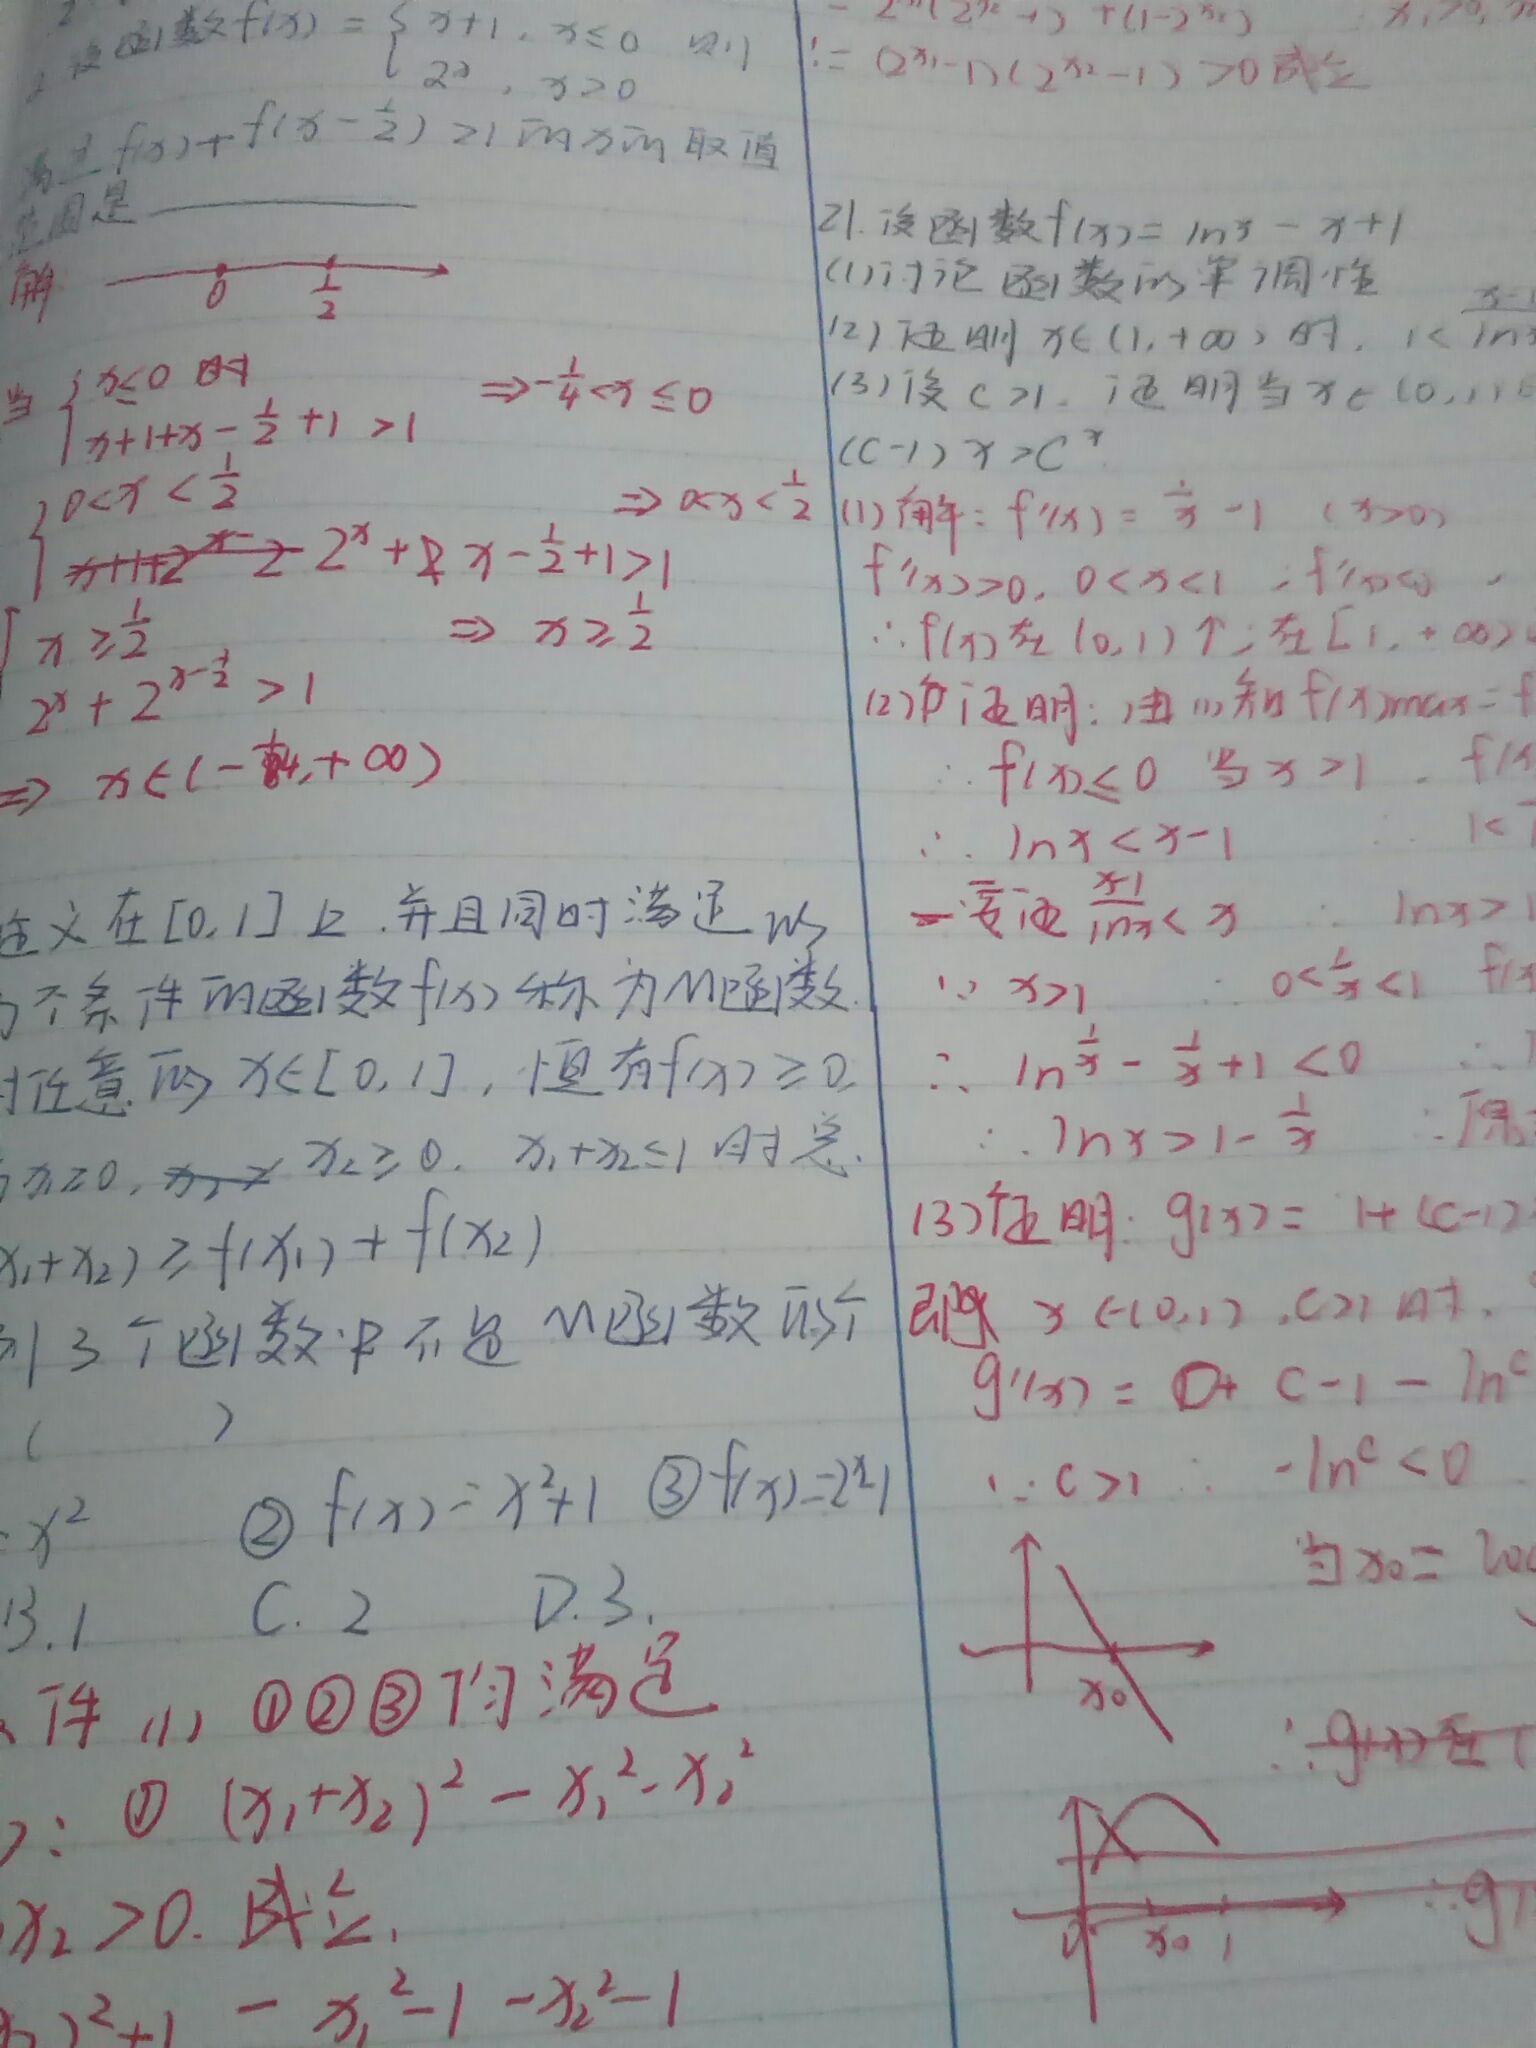 设函数f(x) = { x+1, x≤0 则
2ˣ, x>0
满足f(x)+f(x-1/2)>1的x的取值
范围是
解 0 1/2
当 { x≤0 时 ⇒ -1/4<x≤0
x+1+x-1/2+1>1
{ 0<x<1/2 ⇒ 0<x<1/2
2ˣ+x-1/2+1>1
{ x≥1/2 ⇒ x≥1/2
2ˣ+2^(x-1/2)>1
⇒ x∈(-1/4,+∞)
定义在[0,1]上,并且同时满足以
个条件的函数f(x)称为M函数.
对任意的x∈[0,1],恒有f(x)≥0.
x₁≥0, x₂≥0. x₁+x₂≤1时总.
x₁+x₂)≥f(x₁)+f(x₂)
列3个函数中不是M函数的个
( )
=x² ② f(x)=x²+1 ③ f(x)=2ˣ-1
B.1 C.2 D.3.
件(1) ①②③均满足
): ① (x₁+x₂)²-x₁²-x₂²
x₂>0. 成立.
)²+1-x₁²-1-x₂²-1
+(1-2^(x₂))
!= (2^(x₁)-1)(2^(x₂)-1)>0成立
21.设函数f(x)=lnx-x+1
(1)讨论函数的单调性
(2)证明x∈(1,+∞)时, 1<(x-1)/lnx
(3)设c>1.证明当x∈(0,1)
(c-1)x>cˣ
(1)解: f'(x)=1/x-1 (x>0)
f'(x)>0, 0<x<1; f'(x)<0
∴f(x)在(0,1)↑;在[1,+∞)
(2)证明:由(1)知f(x)max=f
∴f(x)≤0 当x>1. f(x
∴lnx<x-1 ∴1<
要证(x-1)/lnx<x ∴lnx>1
∵x>1 ∴0<1/x<1 f(
∴ln1/x-1/x+1<0 ∴
∴lnx>1-1/x ∴原
(3)证明: g(x)=1+(c-1)
x∈(0,1),c>1时.
g'(x)=0+c-1-lnc
∵c>1 ∴ -lnc<0
当x₀=
x₀
∴g(x)在(
0 x₀ 1
∴g(